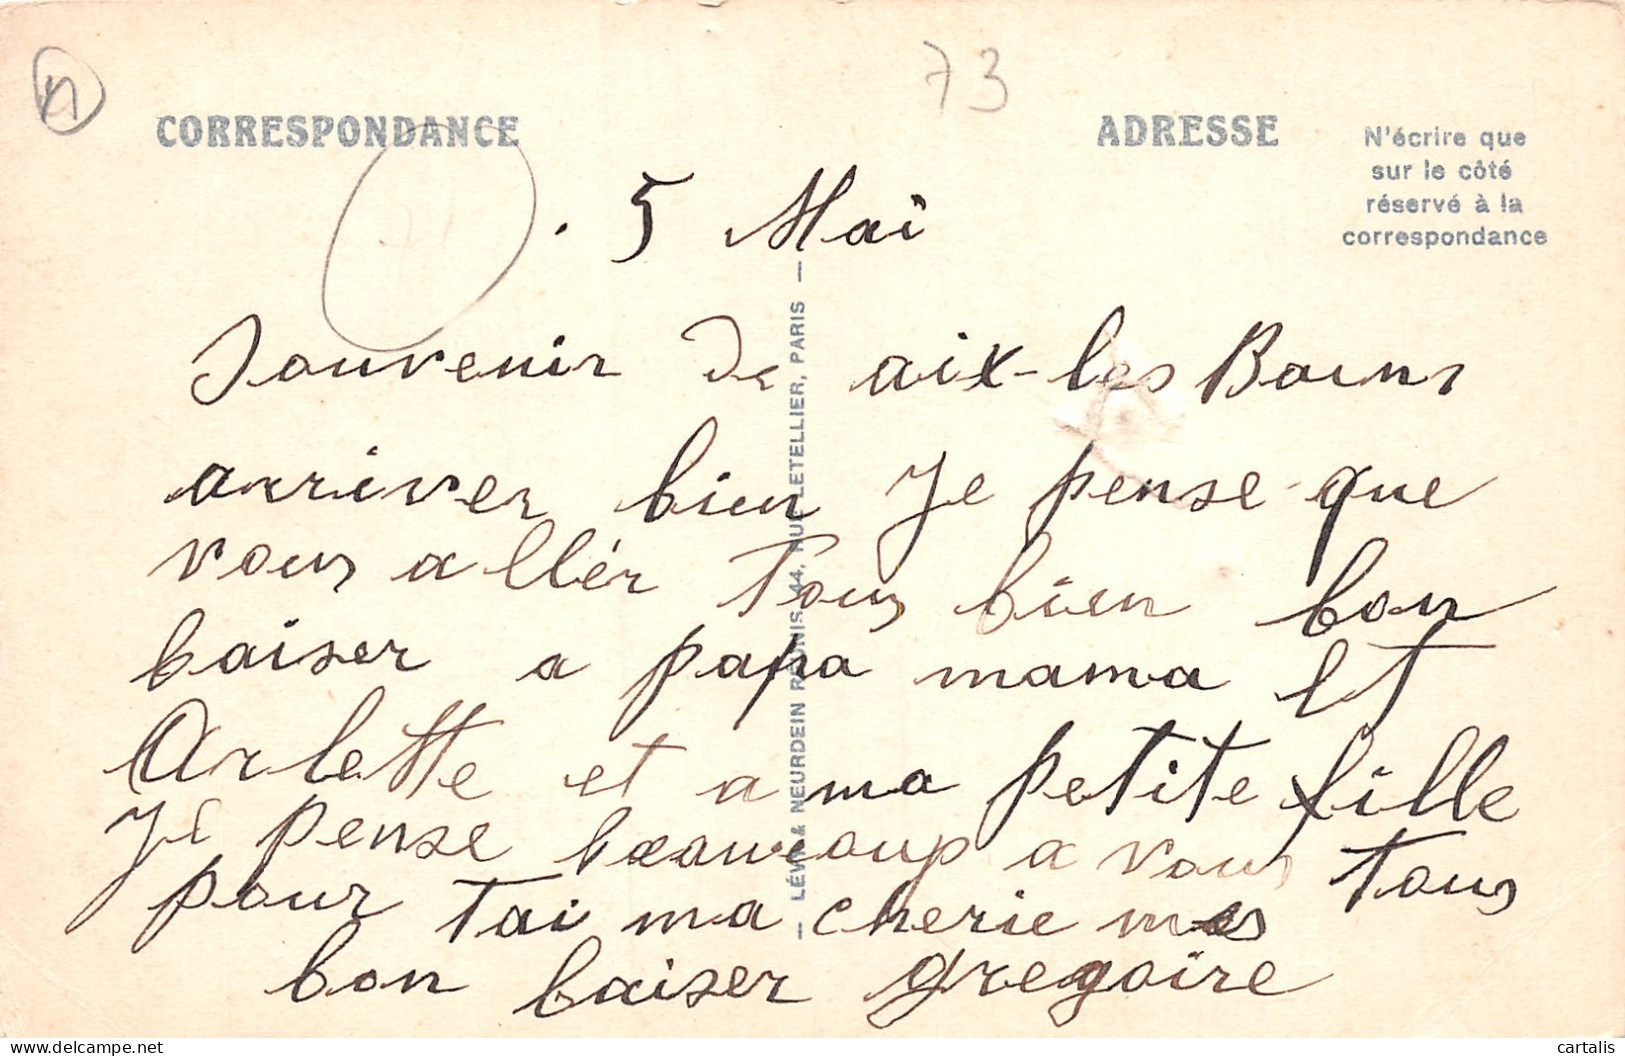 73
CORRESPONDANCE
ADRESSE
N'écrire que
sur le côté
réservé à la
correspondance
. 5 Mai
Souvenir de aix-les Bains
arriver bien Je pense que
vous allér Tous bien bon
baiser a papa mama et
Arlette et a ma petite fille
Je pense beaucoup a vous Tous
pour Tai ma cherie mes
bon baiser gregoire
— LÉVY & NEURDEIN RÉUNIS, 44, RUE LETELLIER, PARIS —
delcampe.net
cartalis